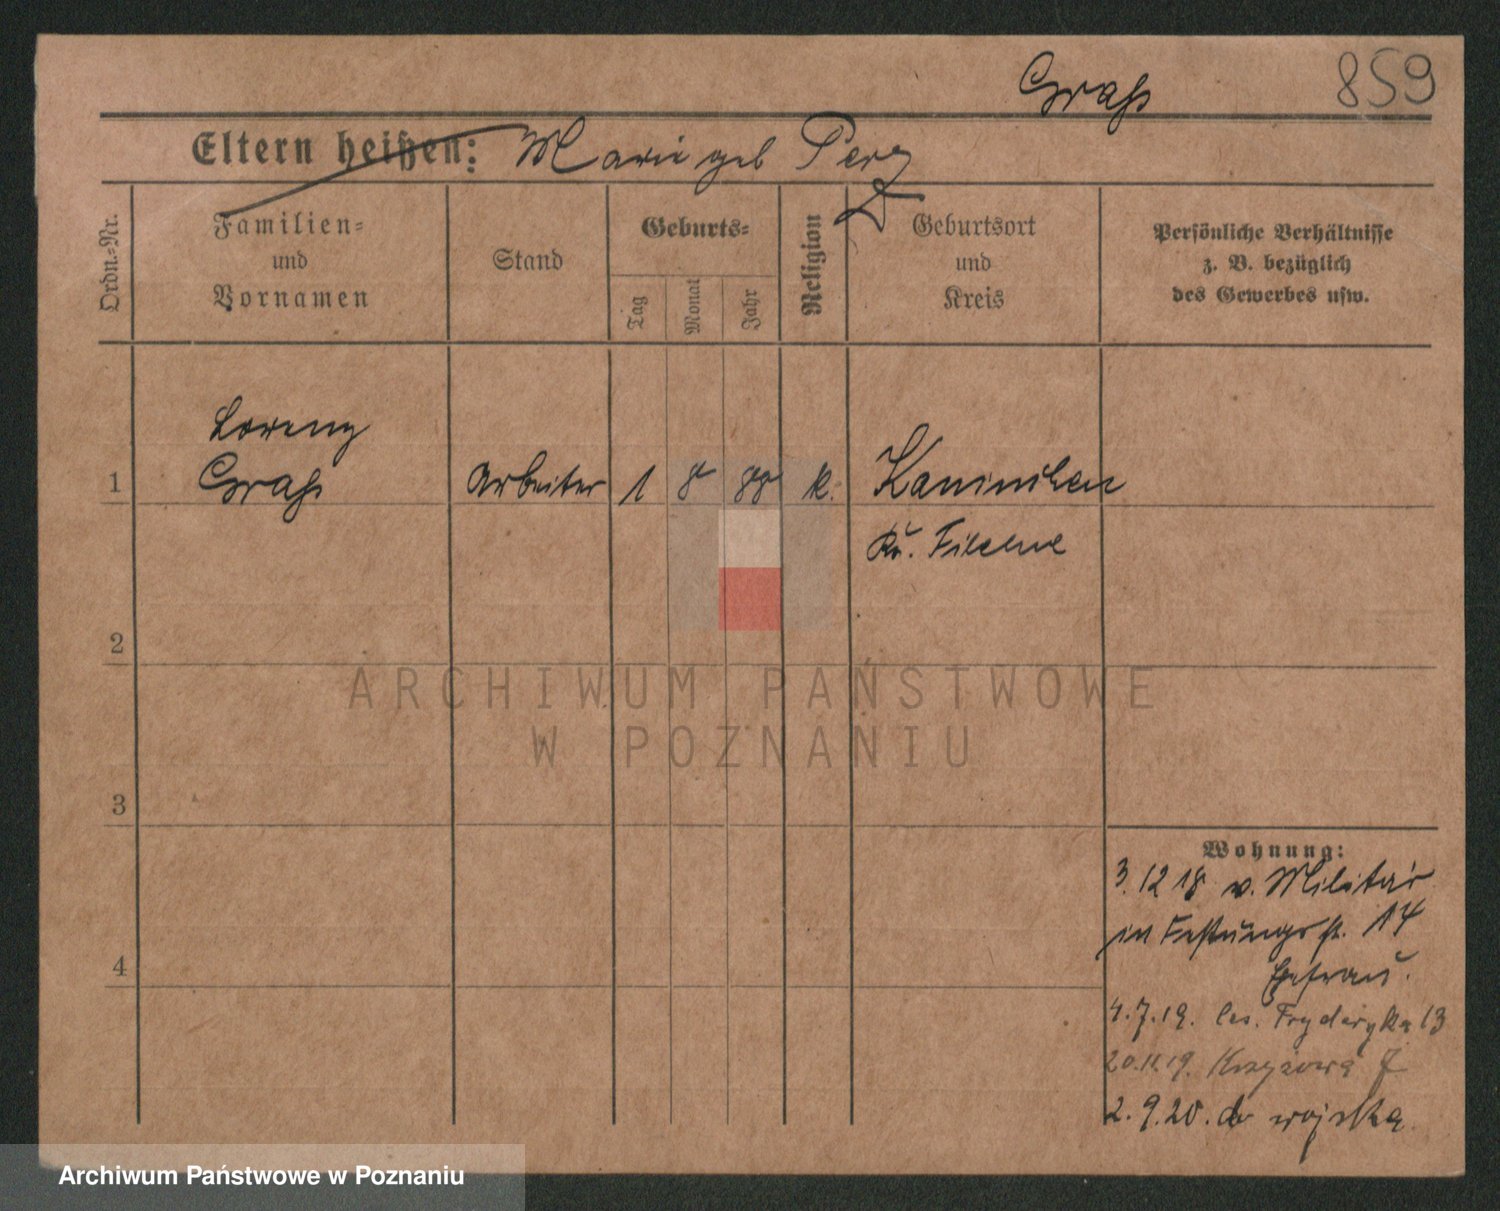 Graß
859
Eltern heißen: Marie geb Perz
Ordn.-Nr.
Familien-
und
Vornamen
Stand
Geburts-
Tag
Monat
Jahr
Religion
Geburtsort
und
Kreis
Persönliche Verhältnisse
z. B. bezüglich
des Gewerbes usw.
Lorenz
1 Graß Arbeiter 1 8 88 k.
Kr. Filehne
2
ARCHIWUM PAŃSTWOWE
W POZNANIU
3
Wohnung:
3.12 18 v. Militär
in Festungsst. 14
Ehefrau.
4
4.7.19. Fryderyka 13
20.11.19. 7
2.9.20. do wojska
Archiwum Państwowe w Poznaniu